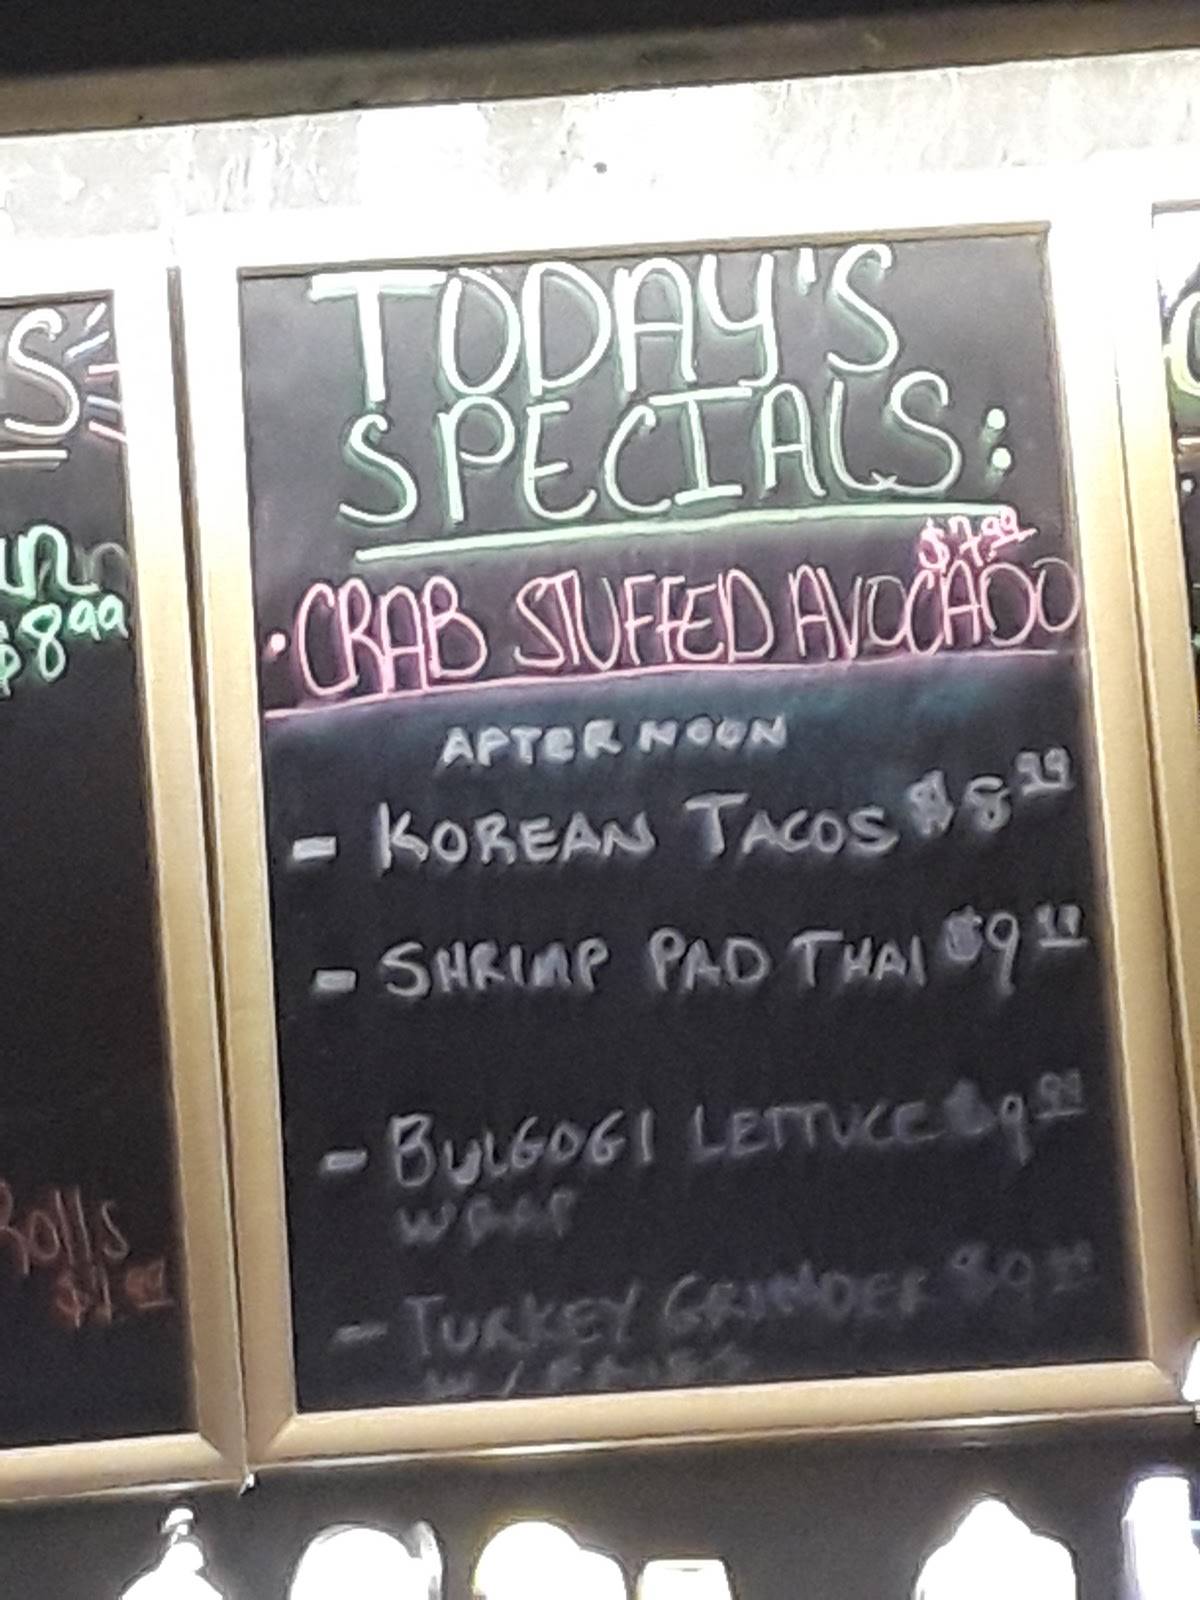 S
un
$8.99
Rolls
$1.99
TODAY'S
SPECIALS:
$7.99
• CRAB STUFFED AVOCADO
AFTERNOON
- KOREAN TACOS $8.99
- SHRIMP PAD THAI $9.99
- BULGOGI LETTUCE $9.99
WRAP
- TURKEY GRINDER $9.99
W/ FRIES